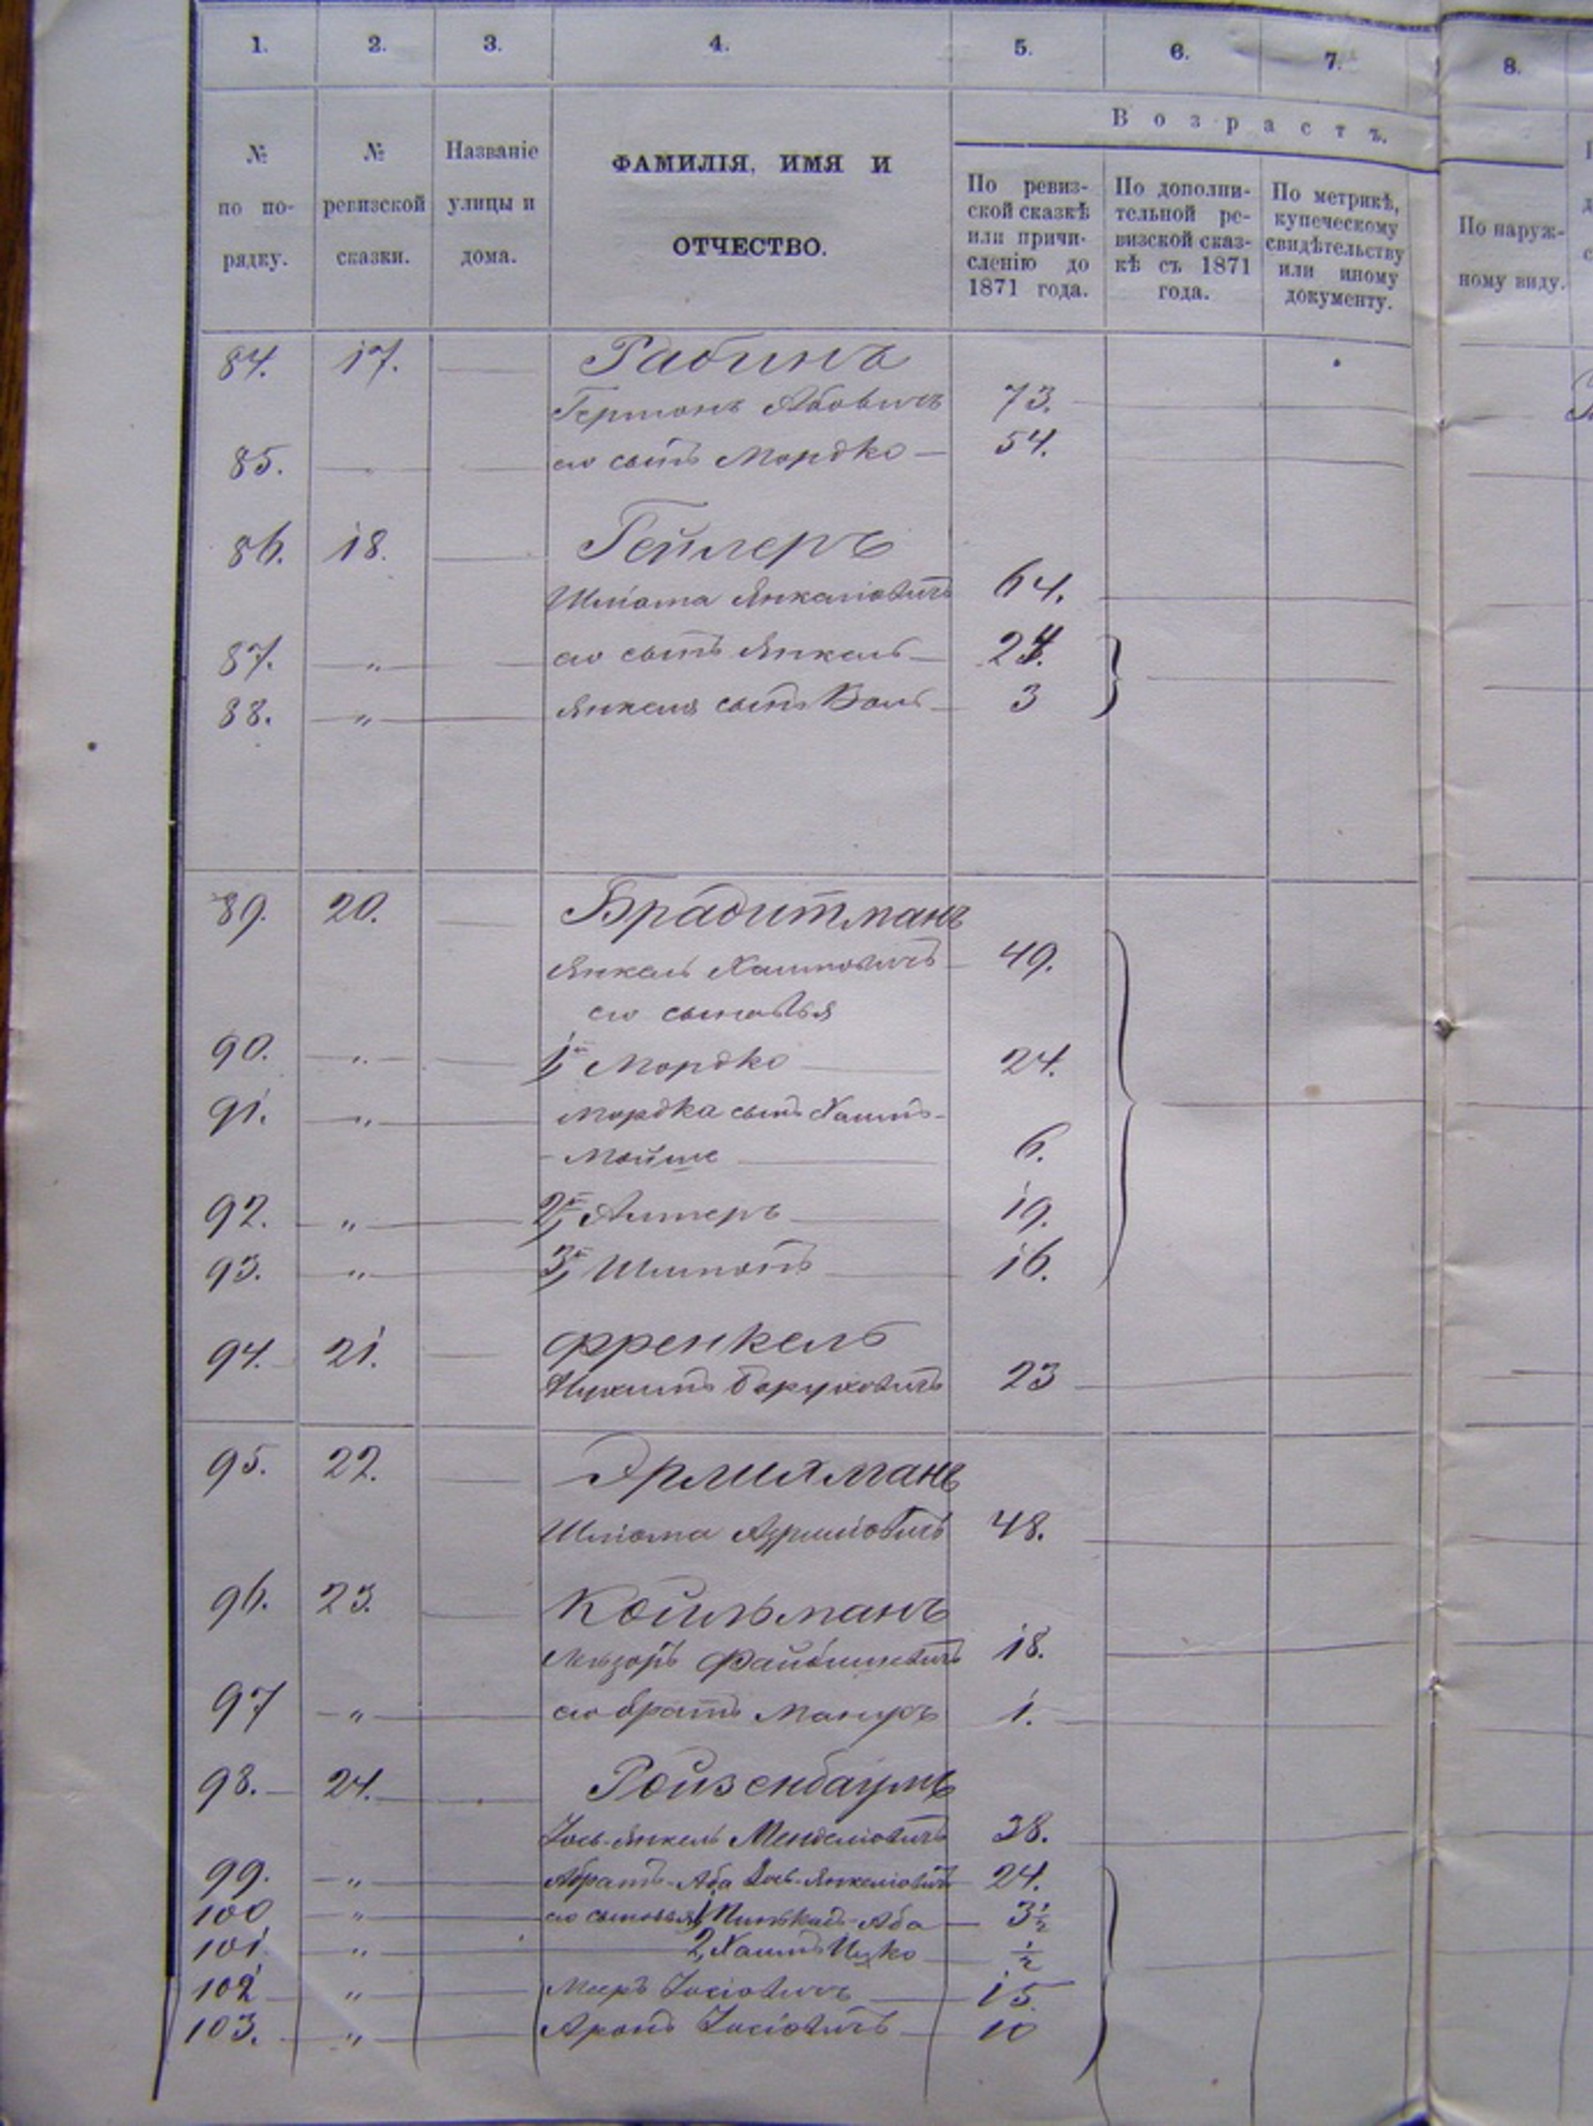 1. 2. 3. 4. 5. 6. 7. 8.
№ по по-рядку.
№ ревизской сказки.
Названіе улицы и дома.
ФАМИЛІЯ, ИМЯ И ОТЧЕСТВО.
Возрастъ.
По ревиз-ской сказкѣ или причи-сленію до 1871 года.
По дополни-тельной ре-визской сказ-кѣ съ 1871 года.
По метрикѣ, купеческому свидѣтельству или иному документу.
По наруж-ному виду.
84. 17. Рабинъ
Гершонъ Абовичъ 73.
85. его сынъ Мордко 54.
86. 18. Гейлеръ
Шліома Янкеліовичъ 64.
87. " его сынъ Янкель 24.
88. " Янкеля сынъ Волъ 3
89. 20. Брадитманъ
Янкель Хаимовичъ 49.
его сыновья
90. " 1й Мордко 24.
91. " Мордка сынъ Хаимъ-
-Мойше 6.
92. " 2й Алтеръ 19.
93. " 3й Шимонъ 16.
94. 21. Френкель
Нухимъ Баруховичъ 23
95. 22. Эрлихманъ
Шліома 48.
96. 23. Койльманъ
Лейзоръ Файбишевичъ 18.
97 " его братъ 1.
98. 24. Ройзенбаумъ
Іось-Янкель Менделіовичъ 38.
99. " Абрамъ-Аба Іось-Янкеліовичъ 24.
100 " его сыновья 1, Пинькасъ-Аба 3½
101. " 2, Хаимъ Ицко ½
102 " Мееръ Іосіовичъ 15.
103. " Аронъ Іосіовичъ 10